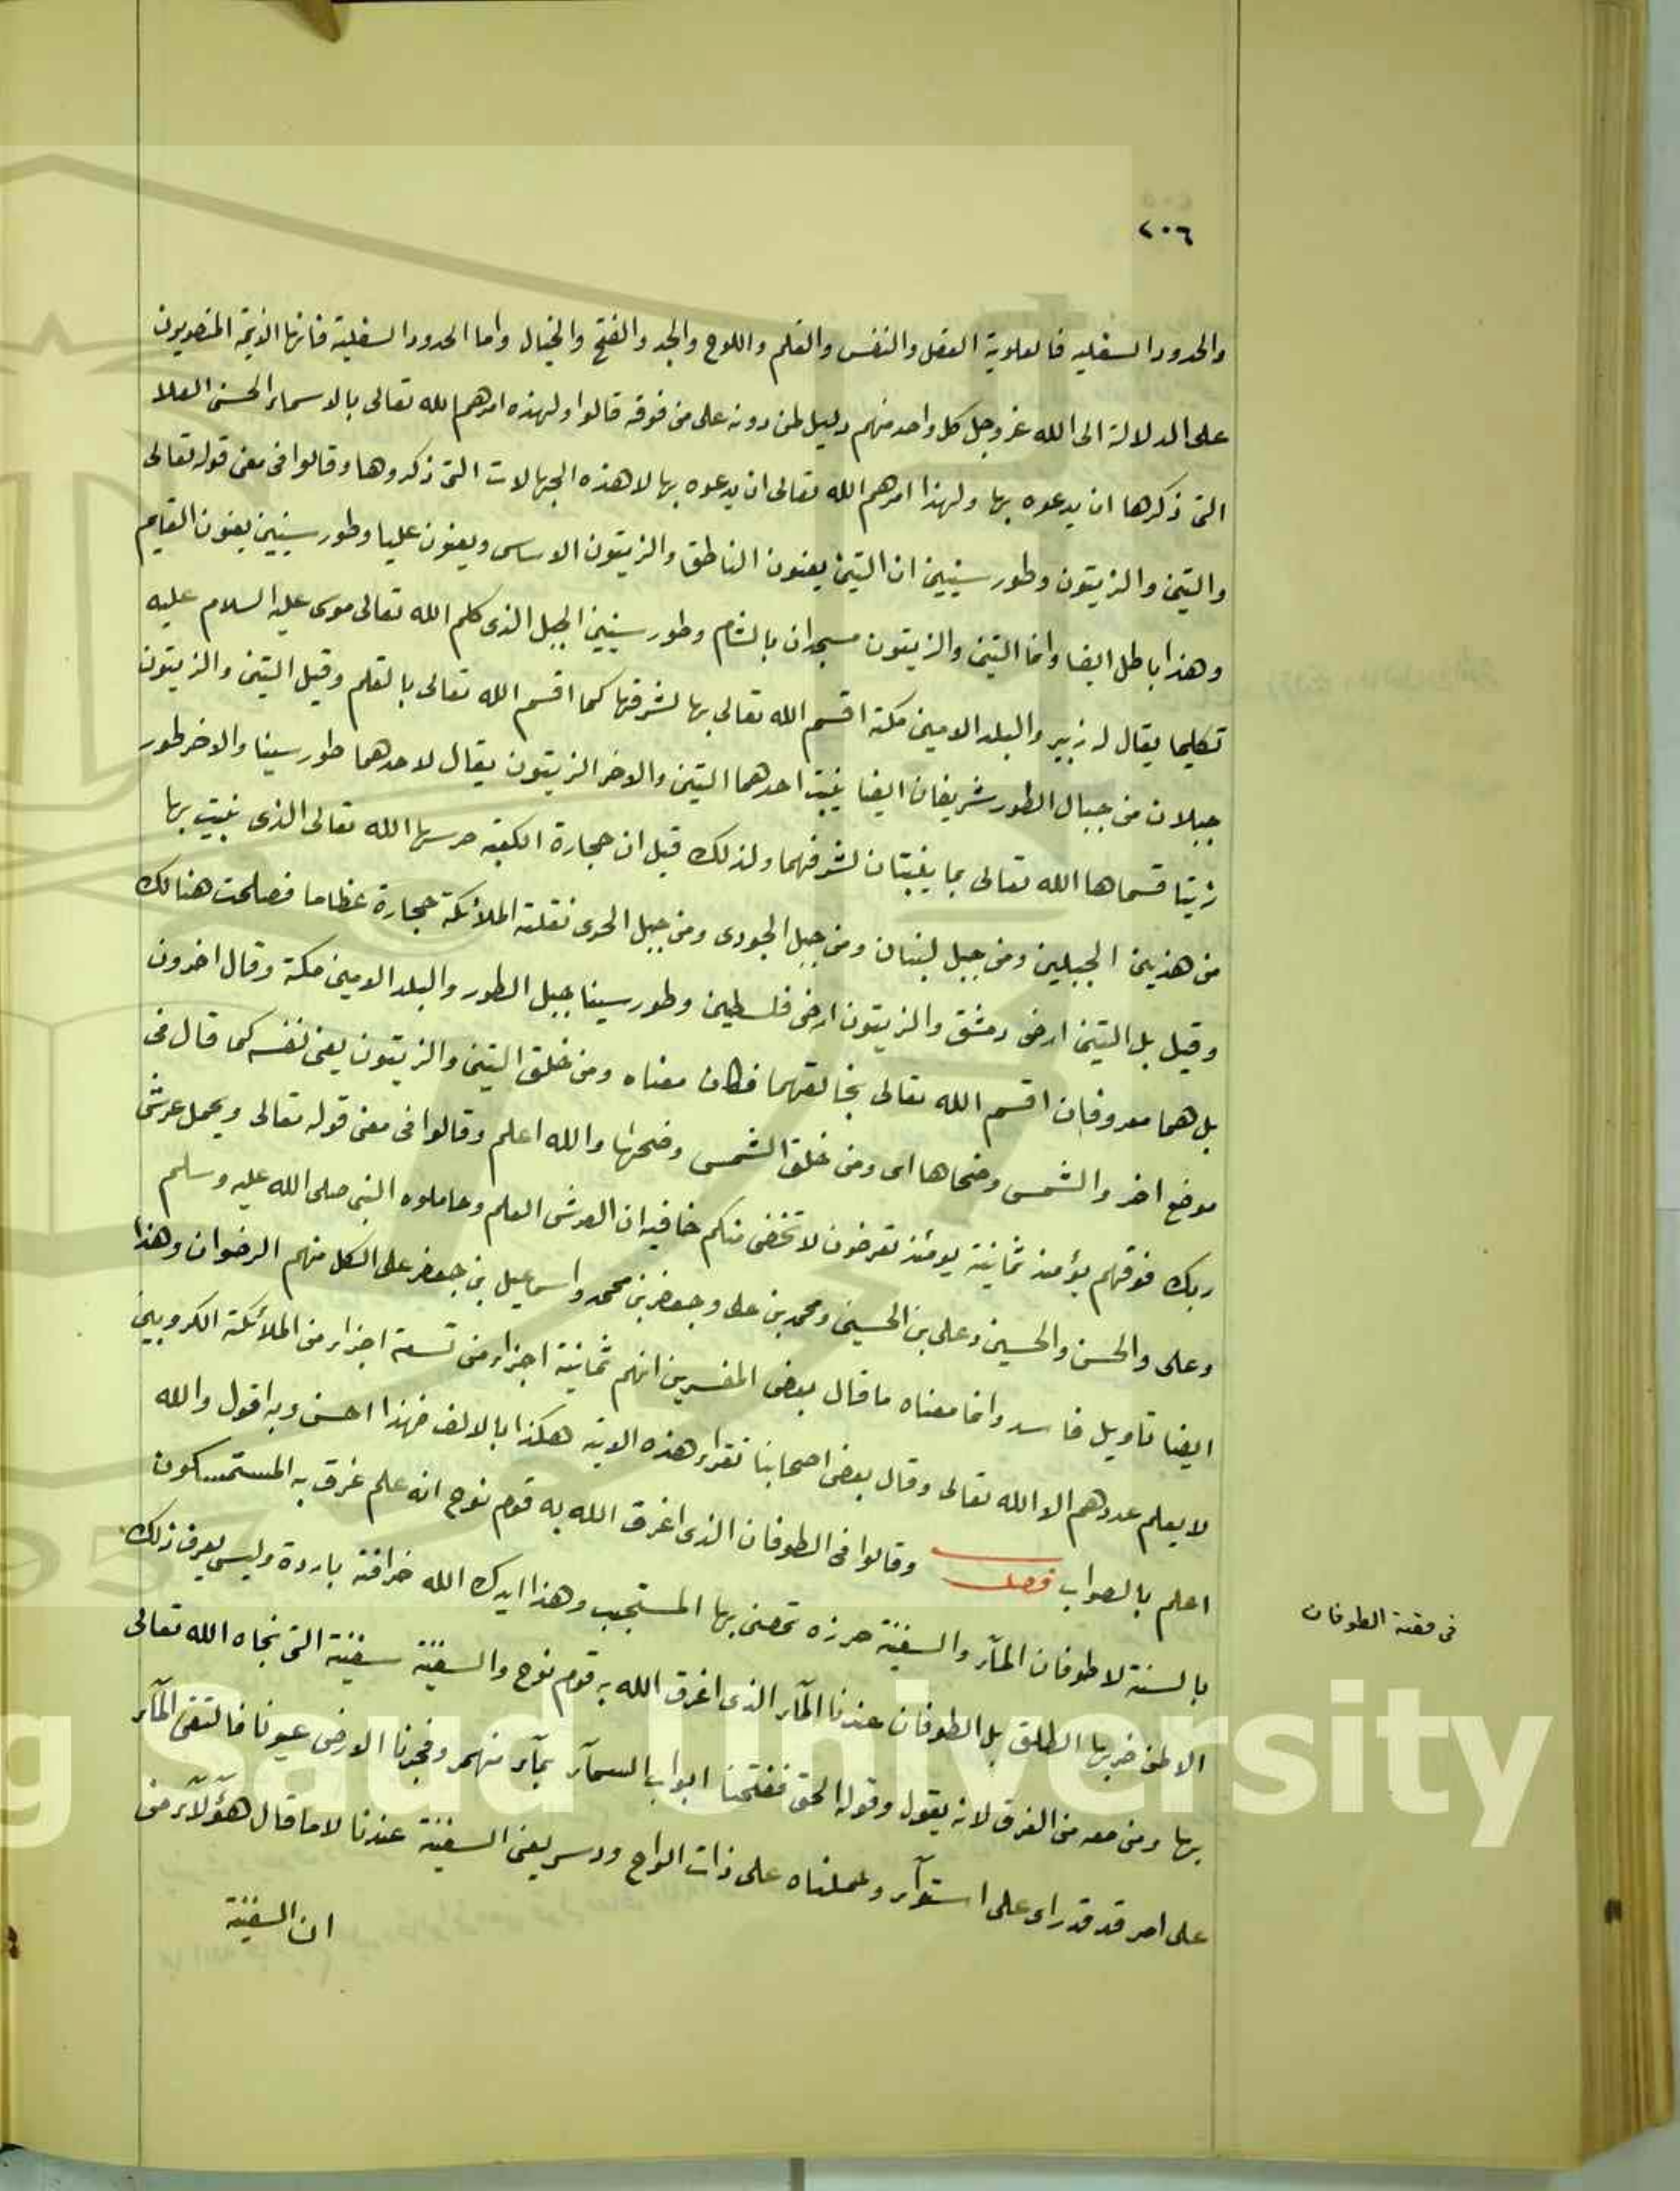 ٢٠٦
والحدود السفليه فالعلوية العقل والنفس والقلم واللوح والجد والفتح والخيال واما الحدود السفلية فانها الايمة المنصوبون
على الدلالة الى الله عز وجل كل واحد منهم دليل لمن دونه على من فوقه قالوا ولهذه امرهم الله تعالى بالاسماء الحسنى العلا
التى ذكرها ان يدعوه بها ولهذا امرهم الله تعالى ان يدعوه بها لا هذه الجهالات التى ذكروها وقالوا فى معنى قوله تعالى
والتين والزيتون وطور سينين ان التين يعنون الناطق والزيتون الاساس ويعنون عليا وطور سينين يعنون القايم
وهذا باطل ايضا وانما التين والزيتون مسجدان بالشام وطور سينين الجبل الذى كلم الله تعالى موسى عليه السلام عليه
تكليما يقال له زبير والبلد الامين مكة اقسم الله تعالى بها لشرفها كما اقسم الله تعالى بالقلم وقيل التين والزيتون
جبلان من جبال الطور شريفان ايضا ينبت احدهما التين والاخر الزيتون يقال لاحدهما طور سينا والاخر طور
زيتا قسماها الله تعالى بما ينبتان لشرفهما ولذلك قيل ان حجارة الكعبة حرسها الله تعالى الذى بنيت بها
من هذين الجبلين ومن جبل لبنان ومن جبل الجودى ومن جبل الحرى نقلته الملائكة حجارة عظاما فصلحت هنالك
وقيل بل التين ارض دمشق والزيتون ارض فلسطين وطور سينا جبل الطور والبلد الامين مكة وقال اخرون
بل هما معروفان اقسم الله تعالى بخالقهما فكان معناه ومن خلق التين والزيتون يعنى نفسه كما قال فى
موضع اخر والشمس وضحاها اى ومن خلق الشمس وضحها والله اعلم وقالوا فى معنى قوله تعالى ويحمل عرش
ربك فوقهم يؤمئذ ثمانية يومئذ تعرضون لا تخفى منكم خافيه ان العرش العلم وحاملوه النبى صلى الله عليه وسلم
وعلى والحسن والحسين وعلى بن الحسين ومحمد بن على وجعفر بن محمد واسماعيل بن جعفر على الكل منهم الرضوان وهذا
ايضا تاويل فاسد وانما معناه ما قال بعض المفسرين انهم ثمانية اجزاء من تسعة اجزاء من الملائكة الكروبين
لا يعلم عددهم الا الله تعالى وقال بعض اصحابنا نقراء هذه الاية هكذا بالالف فهذا احسن وبه اقول والله
اعلم بالصواب فصل وقالوا فى الطوفان الذى اغرق الله به قوم نوح انه علم غرق به المستمسكون
بالسنة لا طوفان المآء والسفينة حرزه تحصن بها المستجيب وهذا ايدك الله خرافة باردة وليس يعرف ذلك
الا من ضربها الطلق بل الطوفان عندنا المآء الذى اغرق الله به قوم نوح والسفينة سفينة التى نجاه الله تعالى
بها ومن معه من الغرق لانه يقول وقوله الحق ففتحنا ابواب السمآء بمآء منهمر وفجرنا الارض عيونا فالتقى المآء
على امر قد قدر اى على استوآء وحملناه على ذات الواح ودسر يعنى السفينة عندنا لا ما قال هؤلآء من
ان السفينة
فى قصة الطوفان